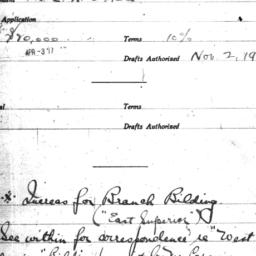 Application
$70,000 Terms 10%
APR-371
Drafts Authorised Nov 2, 19
al Terms
Drafts Authorised
Increas for Branch Bilding
("East Superior")
See within for correspondence re "West